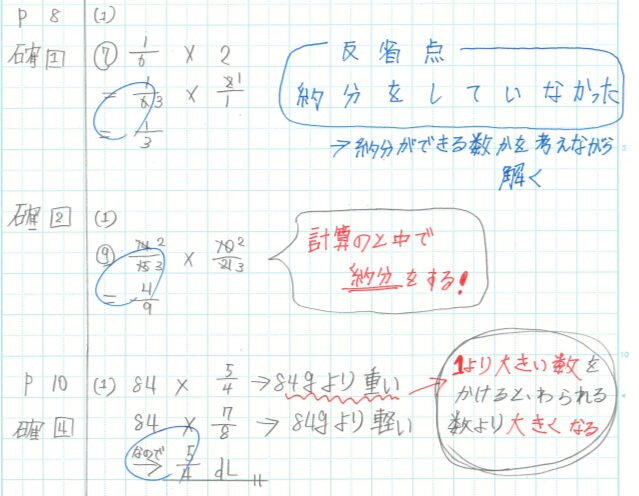 P 8 (1)
確1 ⑦ 1/6 × 2
= 1/6 3 × 2 1/1
= 1/3
反省点
約分をしていなかった
→約分ができる数かを考えながら
解く
確2 (1)
⑨ 14 2/15 3 × 10 2/21 3
= 4/9
計算のと中で
約分をする!
P 10 (1) 84 × 5/4 →84gより重い
確4 84 × 7/8 → 84gより軽い
なので
→ 5/4 dL
1より大きい数を
かけるといわられる
数より大きくなる